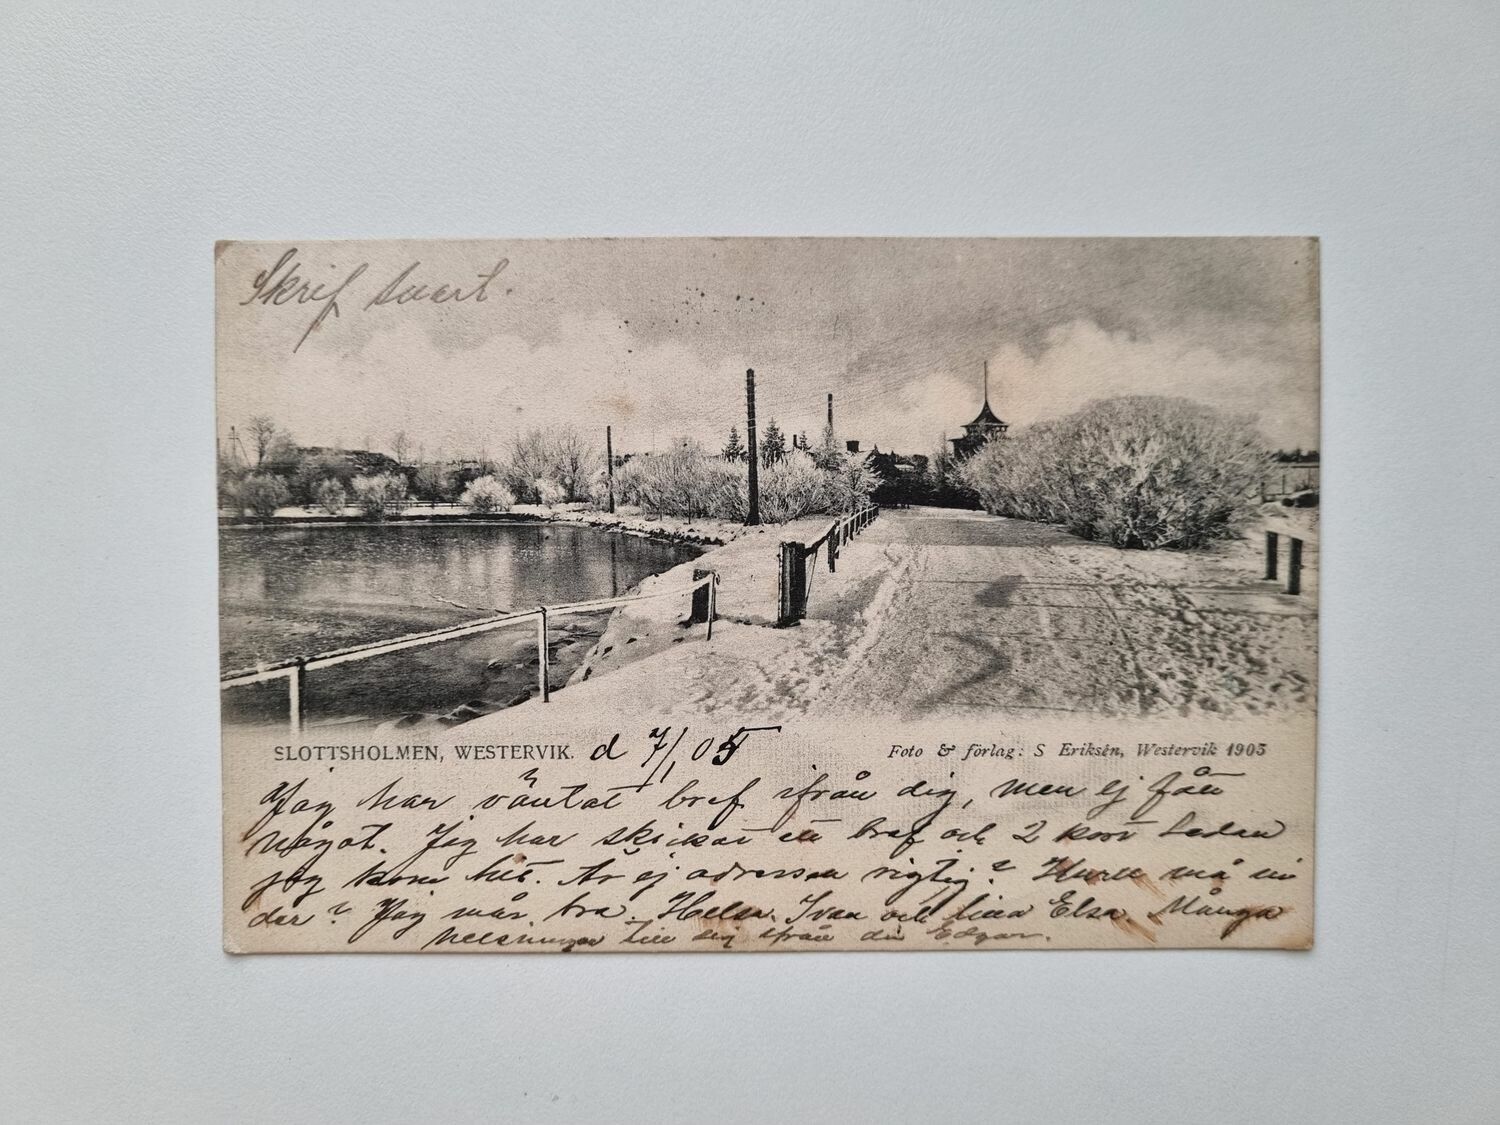 Skrif snart.
SLOTTSHOLMEN, WESTERVIK. d 7/1 05
Foto & förlag: S Eriksén, Westervik 1903
Jag har väntat bref ifrån dig, men ej fått
något. Jag har skickat ett bref och 2 kort sedan
jag kom hit. Är ej adressen rigtig? Huru må ni
der? Jag mår bra. Helsa Ivan och lilla Elsa. Många
helsningar till dig ifrån din Edgar.